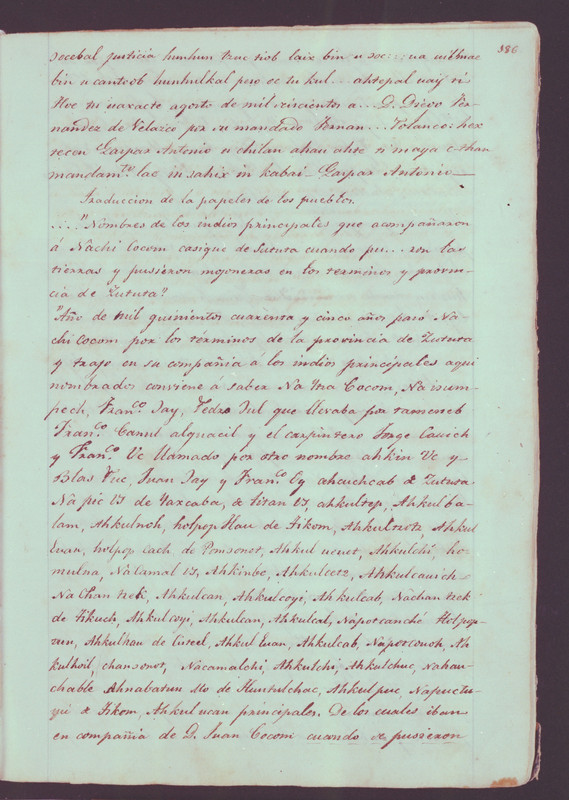 386
socobal justicia hunhun tzuc tiob laix bin u soc::::ua uiblmac
bin u cantoob hunhulkal pero ec tu kul... ahtepal uay ti
Hoc tu uaxacte agosto de mil seiscientos a... D. Diego Fer-
nandez de Velazco por su mandado Fernan... Tolanco hex
recen Gaspar Antonio u chilan ahau ahte ti maya c than
mandam.to lae in sahix in kabai- Gaspar Antonio—
Traduccion de la papeles de los pueblos.
...."Nombres de los indios principales que acompañaron
á Nachi Cocom casique de Sututa cuando pu... ron las
tierras y pusieron mojoneras en los terminos y provin-
cia de Zututa"
"Año de mil quinientos cuarenta y cinco años pasó Na-
chi Cocom por los términos de la provincia de Zututa
y trajo en su compañia á los indios principales aqui
nombrados conviene á saber Na Itza Cocom, Na isum-
pech, Fran.co Jay, Pedro Jul que llevaba por
Fran.co Canul alguacil y el carpintero Jorge Cauich
y Fran.co Uc llamado por otro nombre ahkin Uc y
Blas Tuc, Juan Jay y Fran.co Oy ahcuchcab de Zututa
Na pic Us de Yaxcaba, de titan Us, ahkultop, Ahkulba-
lam, Ahkulnoh, holpop Hau de Tikom, Ahkultzotz, Ahkul
Euan, holpop cach de Pomsonot, Ahkul ucuet, Ahkulchi, ho-
mulna, Na Camal Us, Ahkinbe, Ahkulcetz, Ahkulcauich
Na Chan tzek, Ahkulcan, Ahkulcoyi, Ahkulcab, Nachan tzek
de Tikuch, Ahkulcoyi, Ahkulcan, Ahkulcal, Napotcanché Holpop-
tun, Ahkulhau de Cisteel, Ahkul Euan, Ahkulcab, Napotcouoh, Ah
kulhoil, chansonot, Nacamalchi, Ahkulchi, Ahkulchuc, Nahau-
chable Ahnabatun sto de Huntulchac, Ahkulpuc, Napuctu-
yu de Tikom, Ahkul ucan principales. De los cuales iban
en compañia de D. Juan Cocom cuando se pusieron